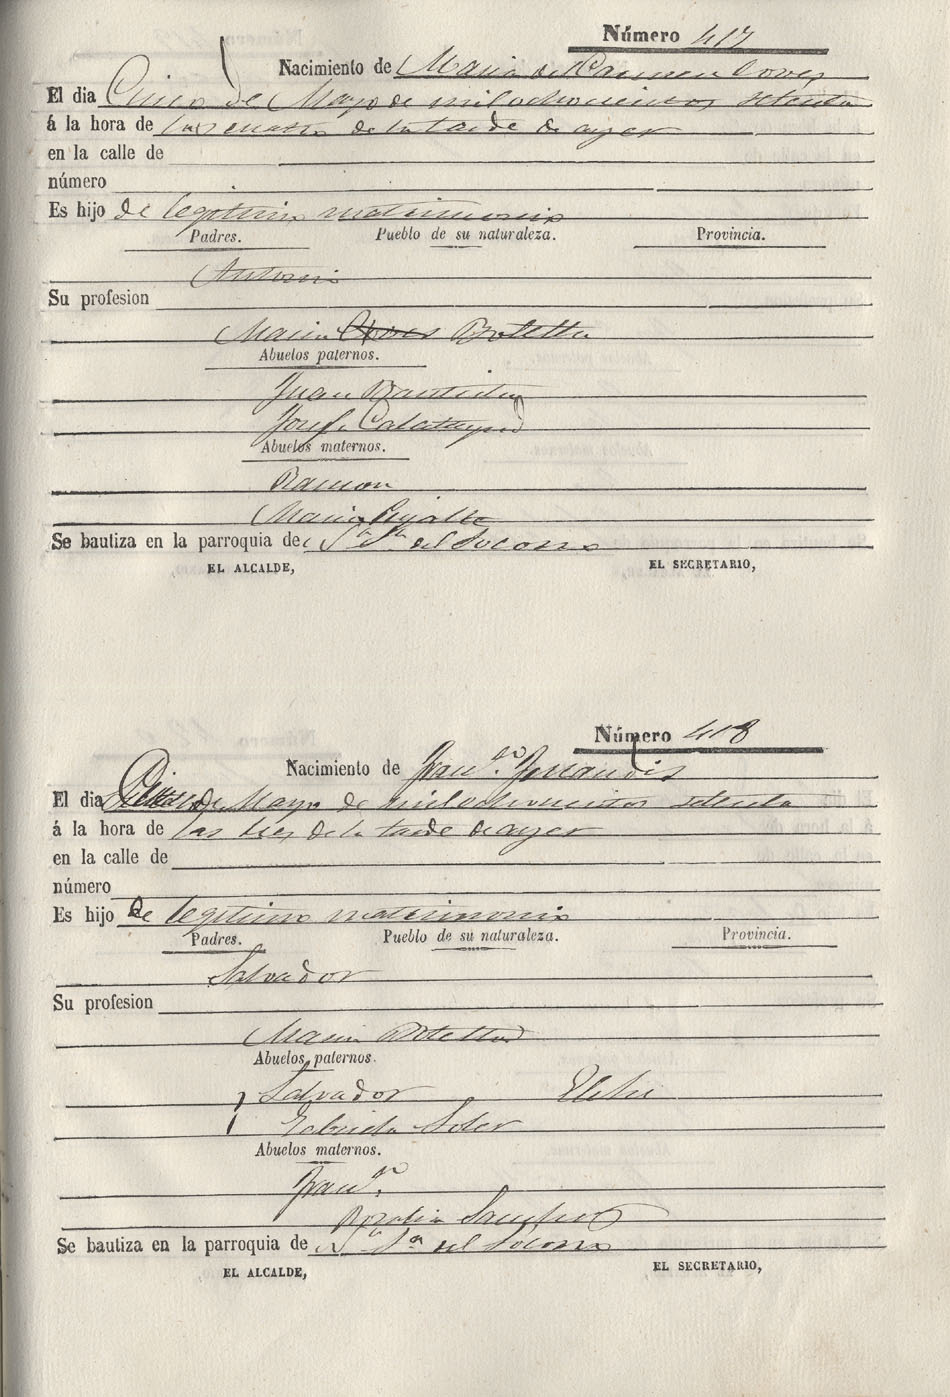 Número 417
Nacimiento de Maria del Carmen Cores
El dia Cinco de Mayo de mil ochocientos setenta
á la hora de las cuatro de la tarde de ayer
en la calle de
número
Es hijo de legitimo matrimonio
Padres. Pueblo de su naturaleza. Provincia.
Antonio
Su profesion
Maria Botella
Abuelos paternos.
Juan Bautista
Josefa Calatayud
Abuelos maternos.
Ramon
Maria
Se bautiza en la parroquia de Sta Ma del Socorro
EL ALCALDE, EL SECRETARIO,
Número 418
Nacimiento de Franco Ferrandis
El dia de Mayo de mil ochocientos setenta
á la hora de las tres de la tarde de ayer
en la calle de
número
Es hijo de legitimo matrimonio
Padres. Pueblo de su naturaleza. Provincia.
Salvador
Su profesion
Maria Botella
Abuelos paternos.
Salvador Elche
Soler
Abuelos maternos.
Franco
Rosalia Sanchez
Se bautiza en la parroquia de Sta del Socorro
EL ALCALDE, EL SECRETARIO,